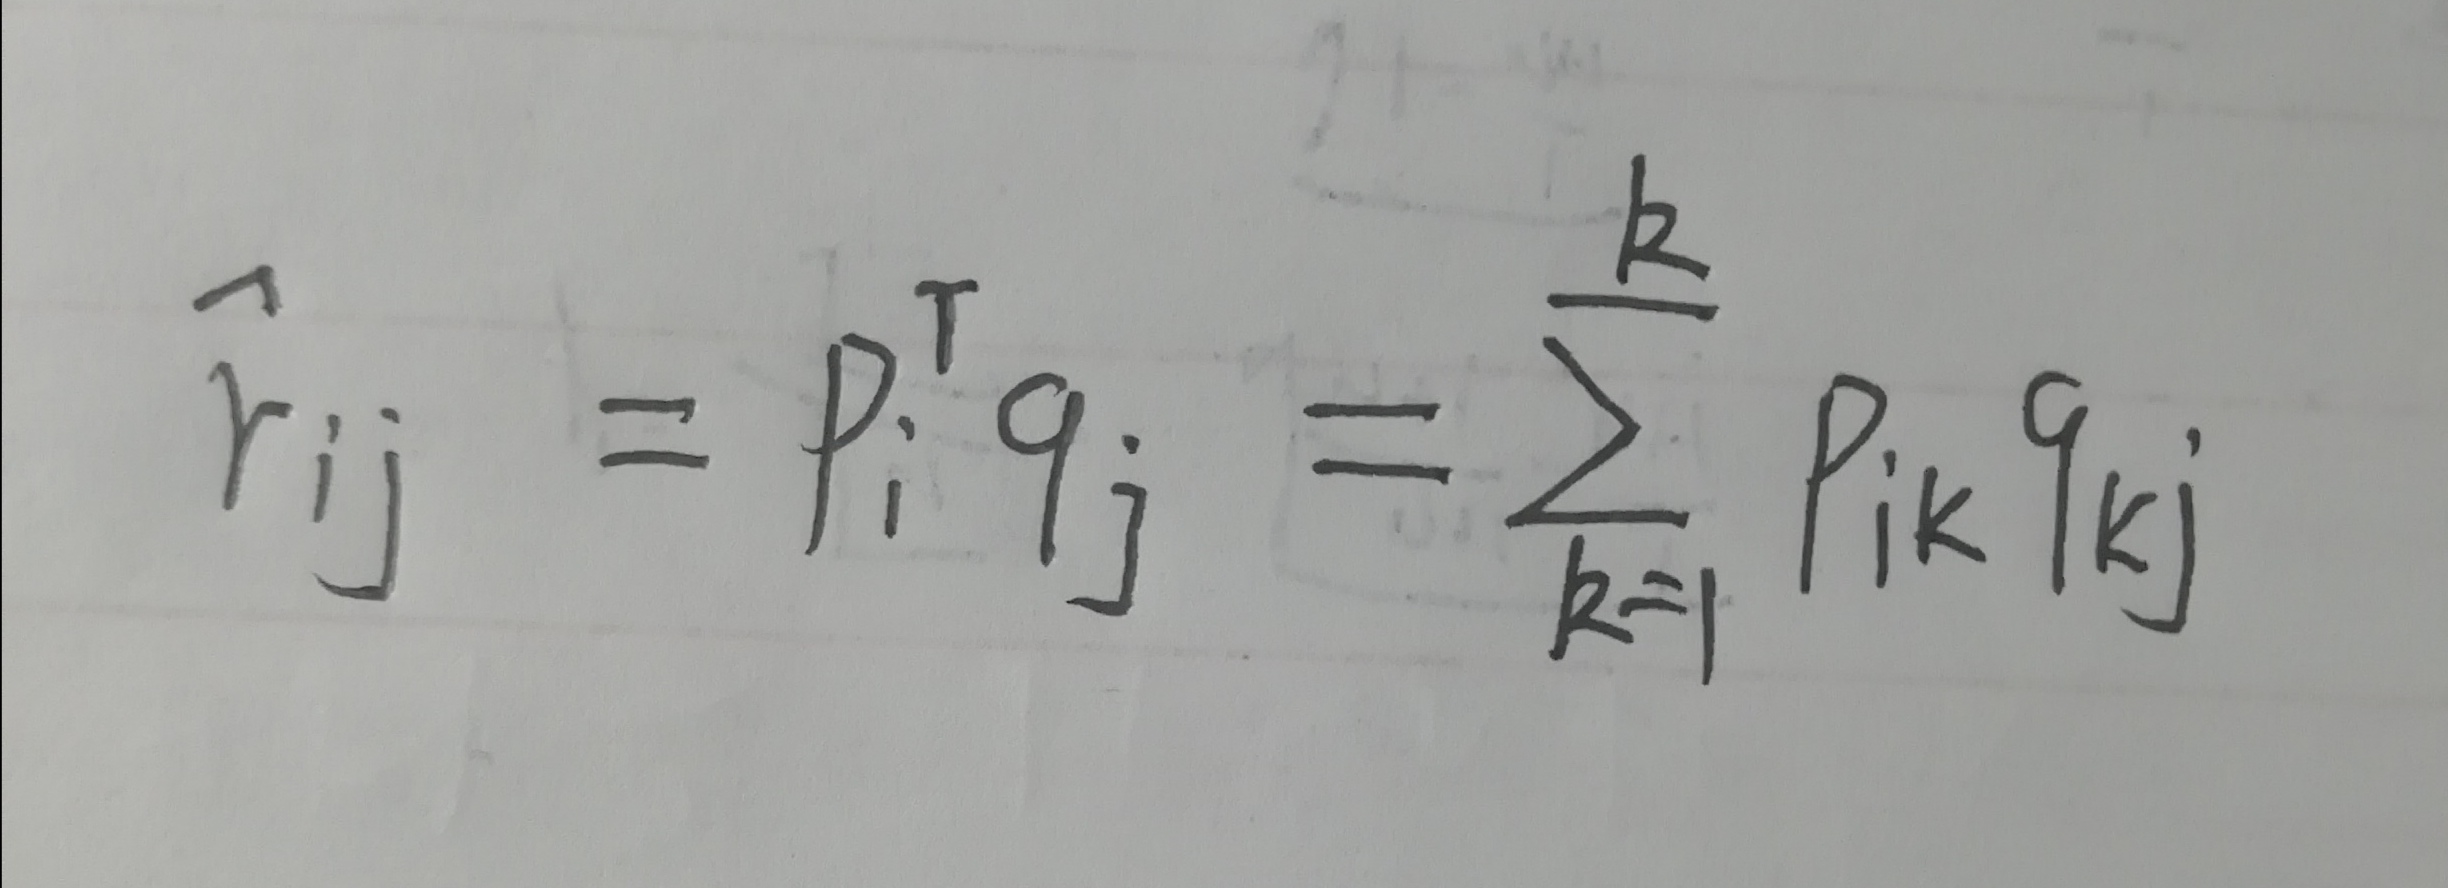 $\hat{r}_{ij} = p_i^T q_j = \sum_{k=1}^{k} p_{ik} q_{kj}$